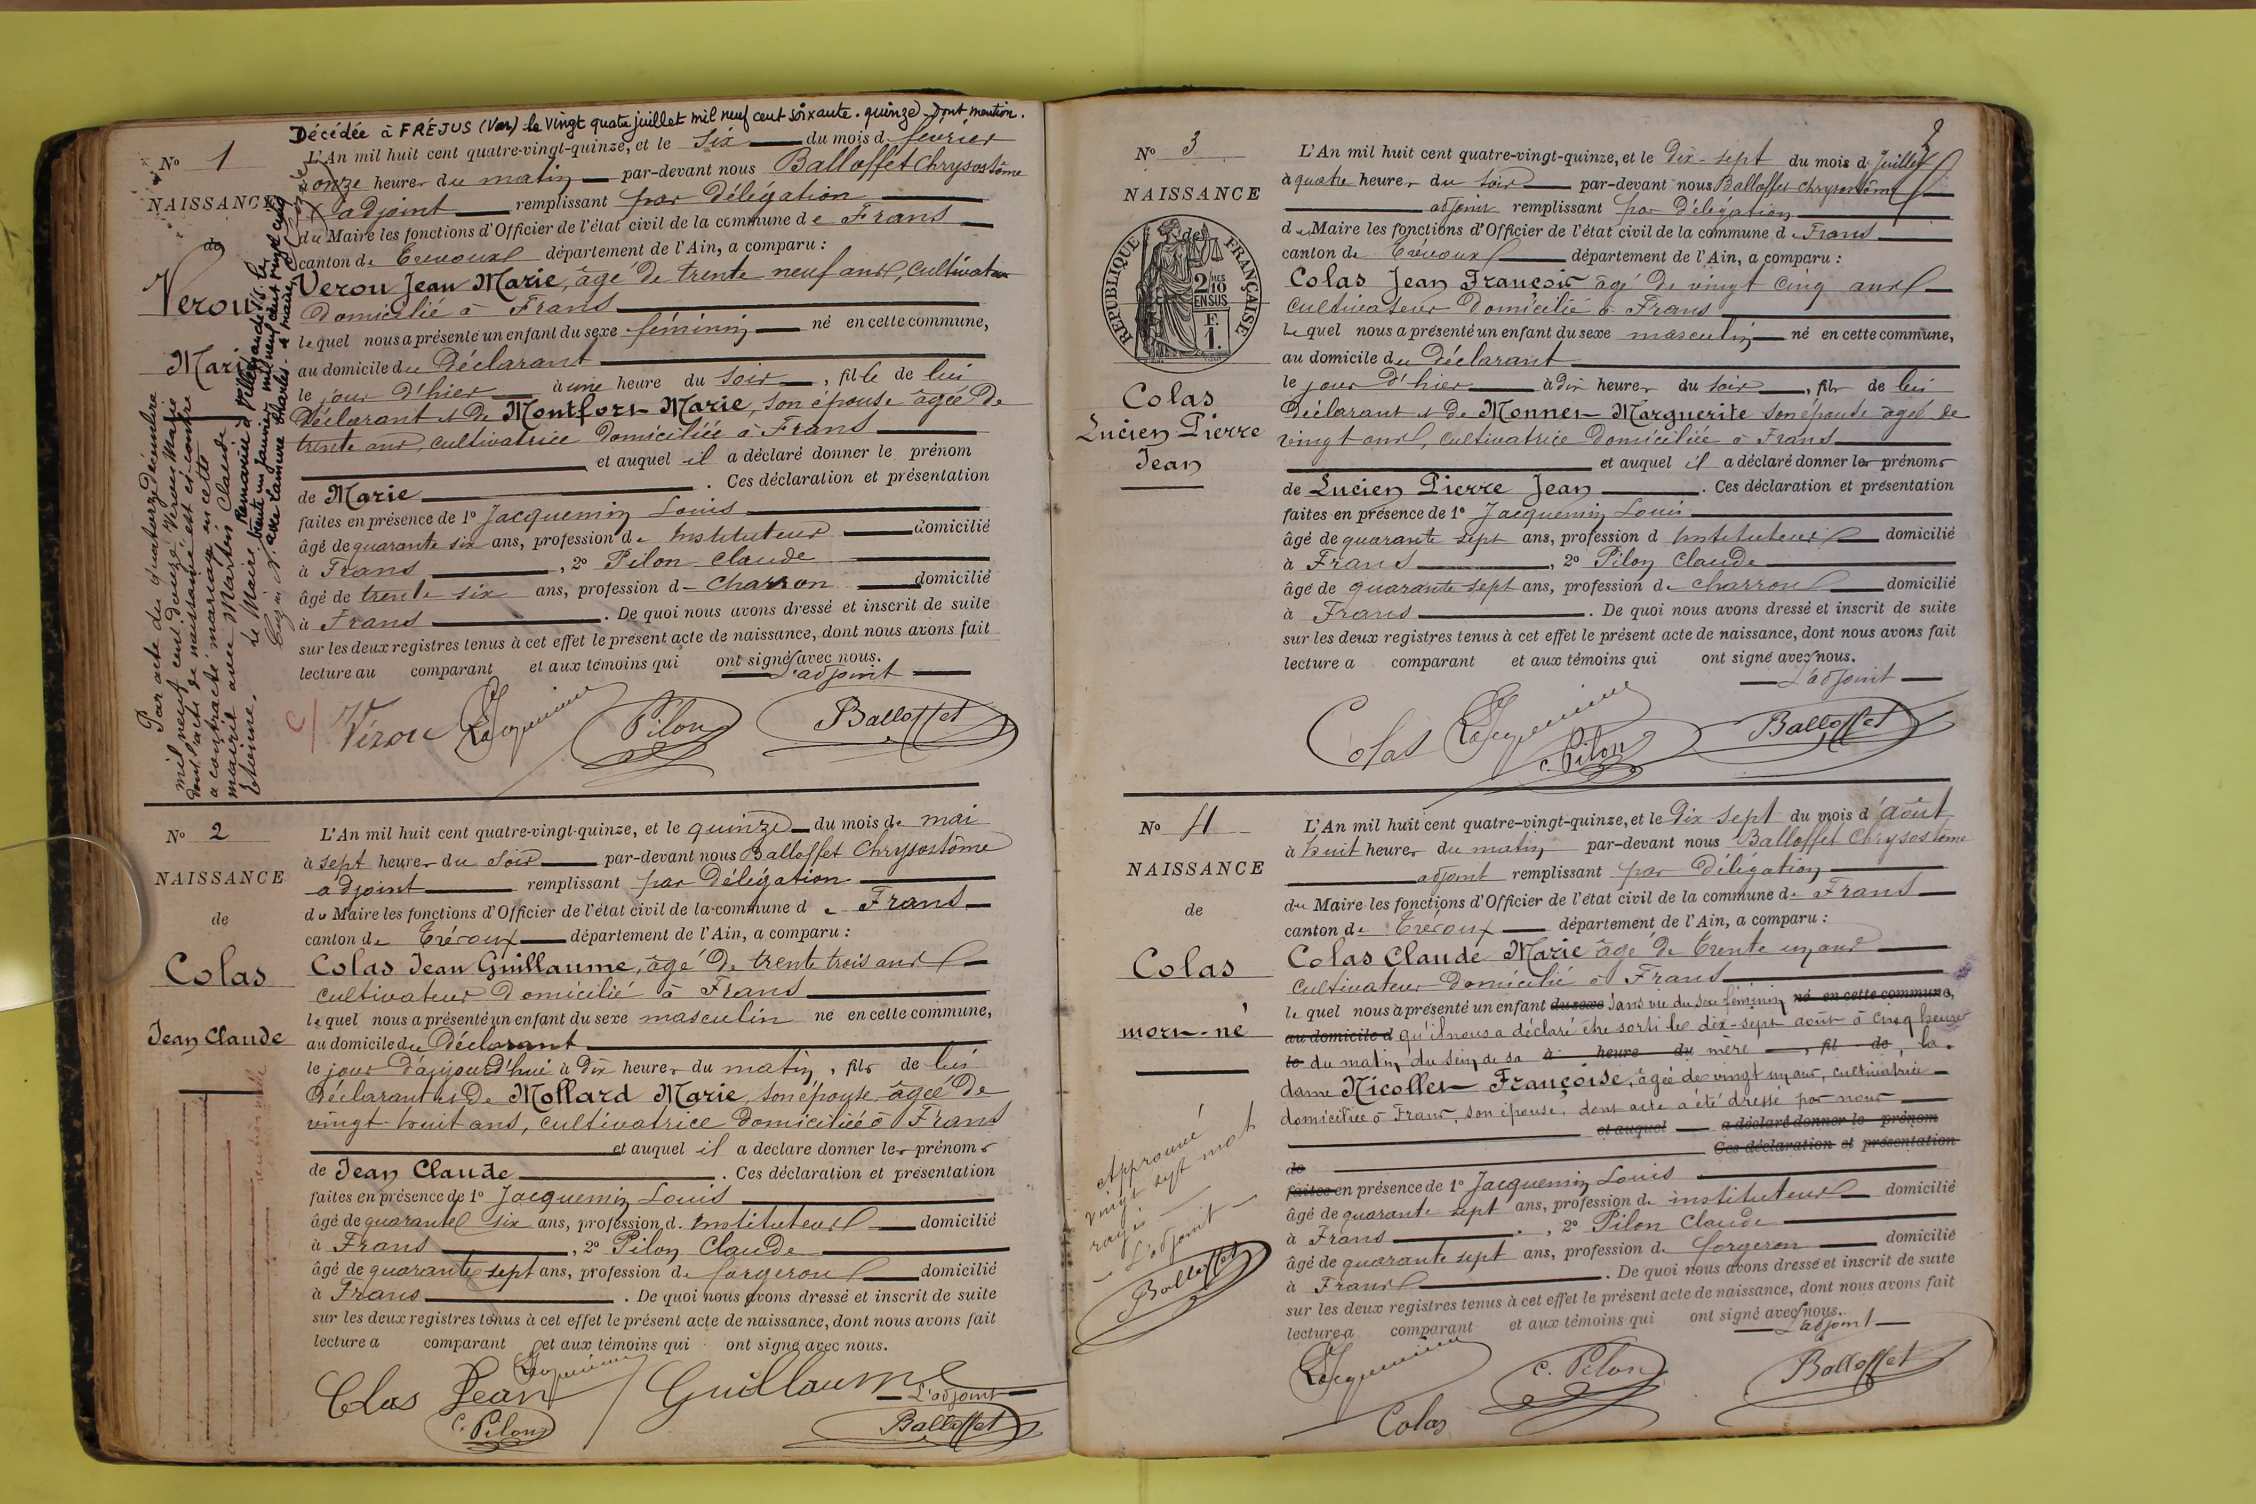 Décédée à FRÉJUS (Var) le vingt quatre juillet mil neuf cent soixante-quinze. Dont mention.
N° 1
NAISSANCE
de
Verou
Marie
Par acte du quatorze décembre
mil neuf cent douze, Verou Marie
dont l'acte de naissance est ci-contre
a contracté mariage en cette
mairie avec Martin Claude
Etienne.
Le Maire
Remariée à
trente un janvier mil neuf cent vingt cinq
avec Charles
L'An mil huit cent quatre-vingt-quinze, et le six du mois d février
à onze heures du matin par-devant nous Balloffet Chrysostôme
adjoint remplissant par délégation
du Maire les fonctions d'Officier de l'état civil de la commune de Frans
canton de Trévoux département de l'Ain, a comparu :
Verou Jean Marie, âgé de trente neuf ans, cultivateur
domicilié à Frans
lequel nous a présenté un enfant du sexe féminin né en cette commune,
au domicile du Déclarant
le jour d'hier à une heure du soir, fille de lui
Déclarant et de Montfort Marie, son épouse âgée de
trente ans, cultivatrice domiciliée à Frans
et auquel il a déclaré donner le prénom
de Marie. Ces déclaration et présentation
faites en présence de 1° Jacquemin Louis
âgé de quarante six ans, profession de Instituteur domicilié
à Frans, 2° Pilon Claude
âgé de trente six ans, profession d Charron domicilié
à Frans. De quoi nous avons dressé et inscrit de suite
sur les deux registres tenus à cet effet le présent acte de naissance, dont nous avons fait
lecture au comparant et aux témoins qui ont signé avec nous.
L'adjoint
Vérou Jacquemin Pilon Balloffet
N° 2
NAISSANCE
de
Colas
Jean Claude
L'An mil huit cent quatre-vingt-quinze, et le quinze du mois de mai
à sept heures du soir par-devant nous Balloffet Chrysostôme
adjoint remplissant par délégation
du Maire les fonctions d'Officier de l'état civil de la commune de Frans
canton de Trévoux département de l'Ain, a comparu :
Colas Jean Guillaume, âgé de trente trois ans
cultivateur domicilié à Frans
lequel nous a présenté un enfant du sexe masculin né en cette commune,
au domicile du Déclarant
le jour d'aujourd'hui à dix heures du matin, fils de lui
Déclarant et de Mollard Marie, son épouse âgée de
vingt-huit ans, cultivatrice domiciliée à Frans
et auquel il a déclaré donner les prénoms
de Jean Claude. Ces déclaration et présentation
faites en présence de 1° Jacquemin Louis
âgé de quarante six ans, profession d. Instituteur domicilié
à Frans, 2° Pilon Claude
âgé de quarante sept ans, profession de forgeron domicilié
à Frans. De quoi nous avons dressé et inscrit de suite
sur les deux registres tenus à cet effet le présent acte de naissance, dont nous avons fait
lecture a comparant et aux témoins qui ont signé avec nous.
Jacquemin
Colas Jean Guillaume
L'adjoint
C. Pilon Balloffet
2
N° 3
NAISSANCE
de
RÉPUBLIQUE FRANÇAISE
2 10
EN SUS
F.
1.
Colas
Lucien Pierre
Jean
L'An mil huit cent quatre-vingt-quinze, et le Dix-sept du mois d Juillet
à quatre heures du soir par-devant nous Balloffet Chrysostôme
adjoint remplissant par Délégation
du Maire les fonctions d'Officier de l'état civil de la commune de Frans
canton de Trévoux département de l'Ain, a comparu :
Colas Jean François âgé de vingt cinq ans
cultivateur domicilié à Frans
lequel nous a présenté un enfant du sexe masculin né en cette commune,
au domicile du Déclarant
le jour d'hier à dix heures du soir, fils de lui
Déclarant et de Monnet Marguerite son épouse âgée de
vingt ans, cultivatrice domiciliée à Frans
et auquel il a déclaré donner les prénoms
de Lucien Pierre Jean. Ces déclaration et présentation
faites en présence de 1° Jacquemin Louis
âgé de quarante sept ans, profession d Instituteur domicilié
à Frans, 2° Pilon Claude
âgé de quarante sept ans, profession de charron domicilié
à Frans. De quoi nous avons dressé et inscrit de suite
sur les deux registres tenus à cet effet le présent acte de naissance, dont nous avons fait
lecture a comparant et aux témoins qui ont signé avec nous.
L'adjoint
Colas Jacquemin C. Pilon Balloffet
N° 4
NAISSANCE
de
Colas
mort-né
Approuvé
vingt sept mots
rayés
L'adjoint
Balloffet
L'An mil huit cent quatre-vingt-quinze, et le Dix sept du mois d'août
à huit heures du matin par-devant nous Balloffet Chrysostôme
adjoint remplissant par Délégation
du Maire les fonctions d'Officier de l'état civil de la commune de Frans
canton de Trévoux département de l'Ain, a comparu :
Colas Claude Marie âgé de trente un ans
cultivateur domicilié à Frans
lequel nous a présenté un enfant du sexe sans vie du sexe féminin né en cette commune,
au domicile d qu'il nous a déclaré être sorti le dix-sept août à cinq heures
le du matin du sein de sa à heure du mère, fil de, la
dame Nicollet Françoise, âgée de vingt un ans, cultivatrice
domiciliée à Frans, son épouse, dont acte a été dressé par nous
et auquel a déclaré donner le prénom
Ces déclaration et présentation
de
faites en présence de 1° Jacquemin Louis
âgé de quarante sept ans, profession de instituteur domicilié
à Frans, 2° Pilon Claude
âgé de quarante sept ans, profession de forgeron domicilié
à Frans. De quoi nous avons dressé et inscrit de suite
sur les deux registres tenus à cet effet le présent acte de naissance, dont nous avons fait
lecture a comparant et aux témoins qui ont signé avec nous.
L'adjoint
Jacquemin C. Pilon Balloffet
Colas